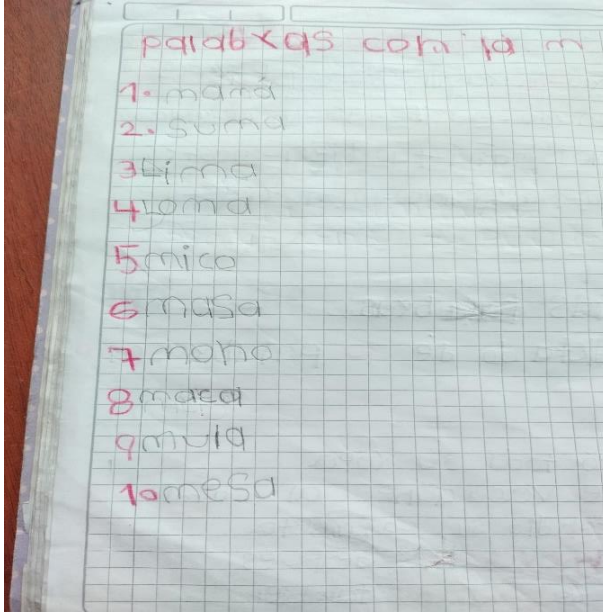 palabras com la m
1. mamá
2. suma
3 Lima
4 Loma
5 mico
6 masa
7 mono
8
9 mula
10 mesa